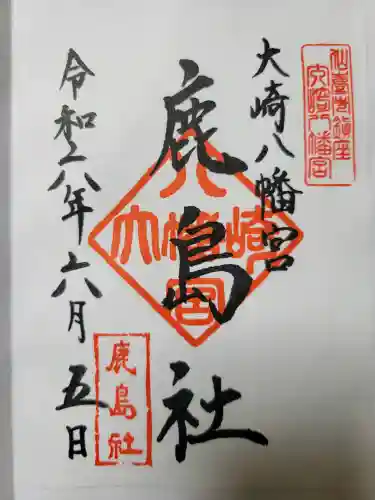 大崎八幡宮
大崎八幡宮
鹿島社
大崎八幡宮
令和六年六月五日
鹿島社